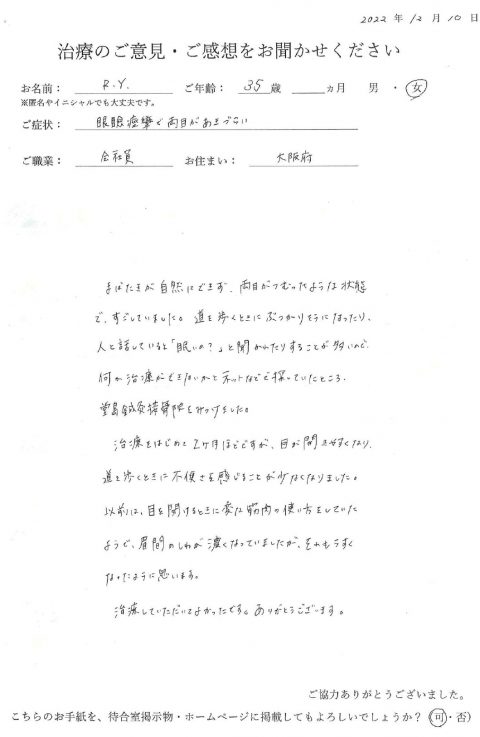 2022 年 12 月 10 日
治療のご意見・ご感想をお聞かせください
お名前： R.Y. ご年齢： 35 歳 ヵ月 男 ・ 女
※匿名やイニシャルでも大丈夫です。
ご症状： 眼瞼痙攣で両目があきづらい
ご職業： 会社員 お住まい： 大阪府
まばたきが自然にできず、両目がつむったような状態
で、すごしていました。道を歩くときにぶつかりそうになったり、
人と話していると「眠いの？」と聞かれたりすることが多いので、
何か治療ができないかとネットなどで探していたところ、
堂島鍼灸接骨院をみつけました。
治療をはじめて2ヶ月ほどですが、目が開きやすくなり、
道を歩くときに不便さを感じることが少なくなりました。
以前は、目を開けるときに変な筋肉の使い方をしていた
ようで、眉間のしわが濃くなっていましたが、それもうすく
なったように思います。
治療していただいてよかったです。ありがとうございます。
ご協力ありがとうございました。
こちらのお手紙を、待合室掲示物・ホームページに掲載してもよろしいでしょうか？（可・否）